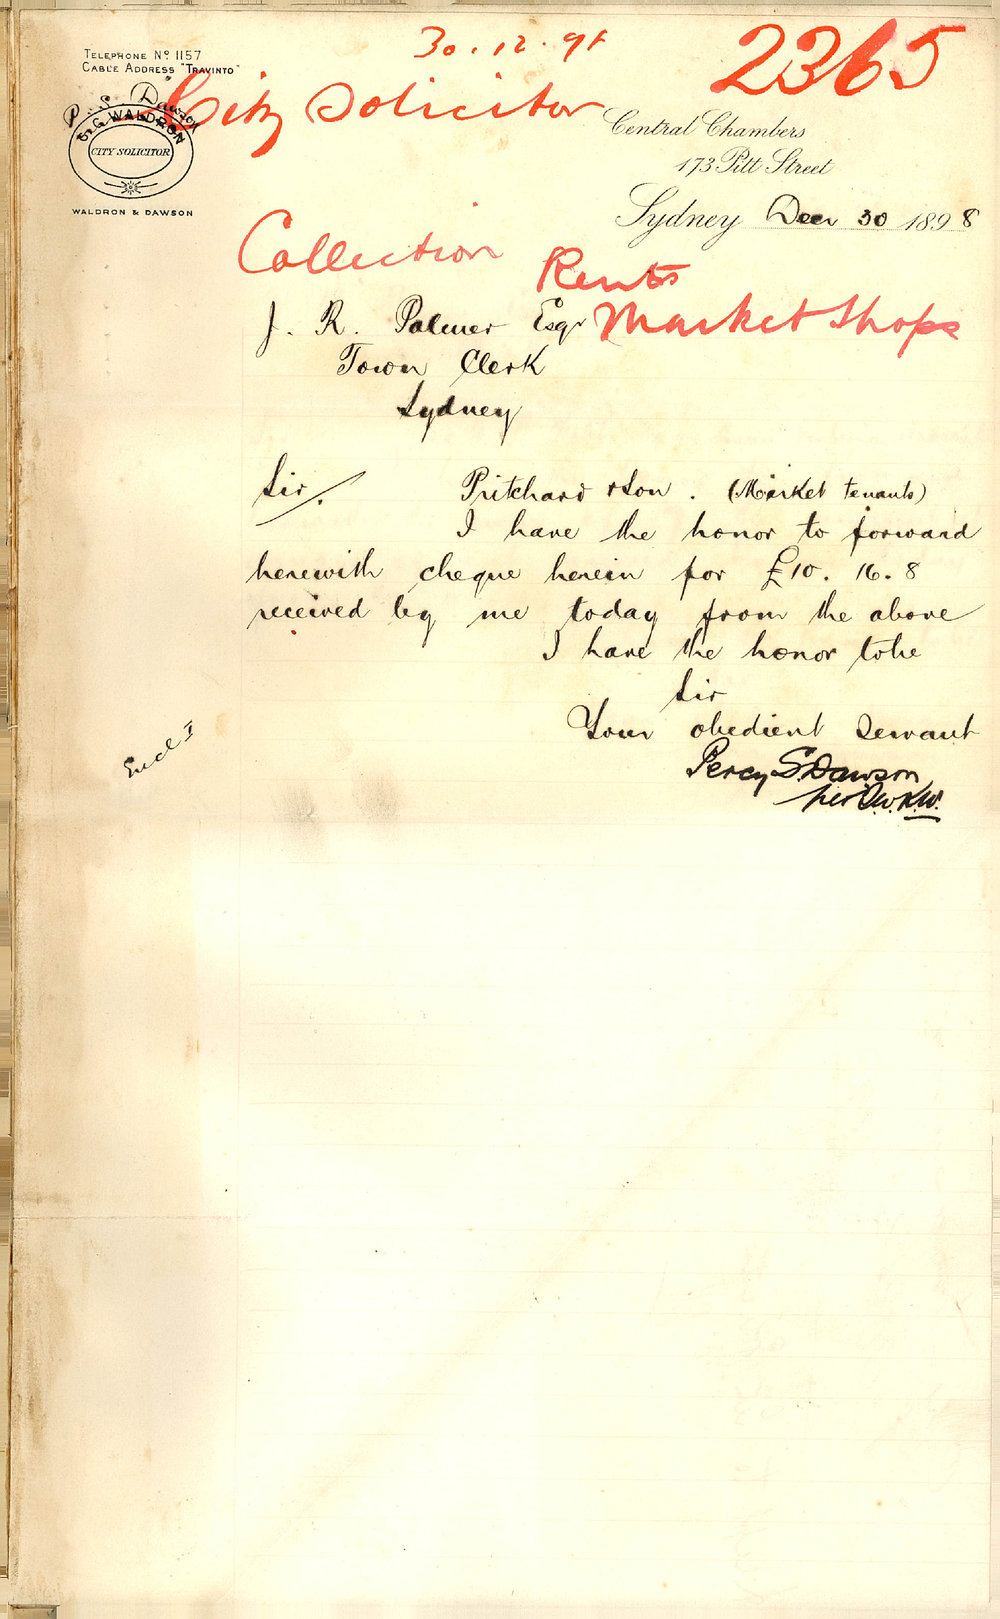 30.12.98
2365
Telephone No 1157
Cable Address "Travinto"
City Solicitor
P. S. Dawson
G. WALDRON
CITY SOLICITOR
WALDRON & DAWSON
Central Chambers
173 Pitt Street
Sydney Decr 30 1898
Collection Rents
Market Shops
J. R. Palmer Esqr
Town Clerk
Sydney
Sir, Pritchard & Son. (Market tenants)
I have the honor to forward
herewith cheque herein for £10. 16. 8
received by me today from the above
I have the honor to be
Sir
Your obedient Servant
Percy S. Dawson
per
Encl I